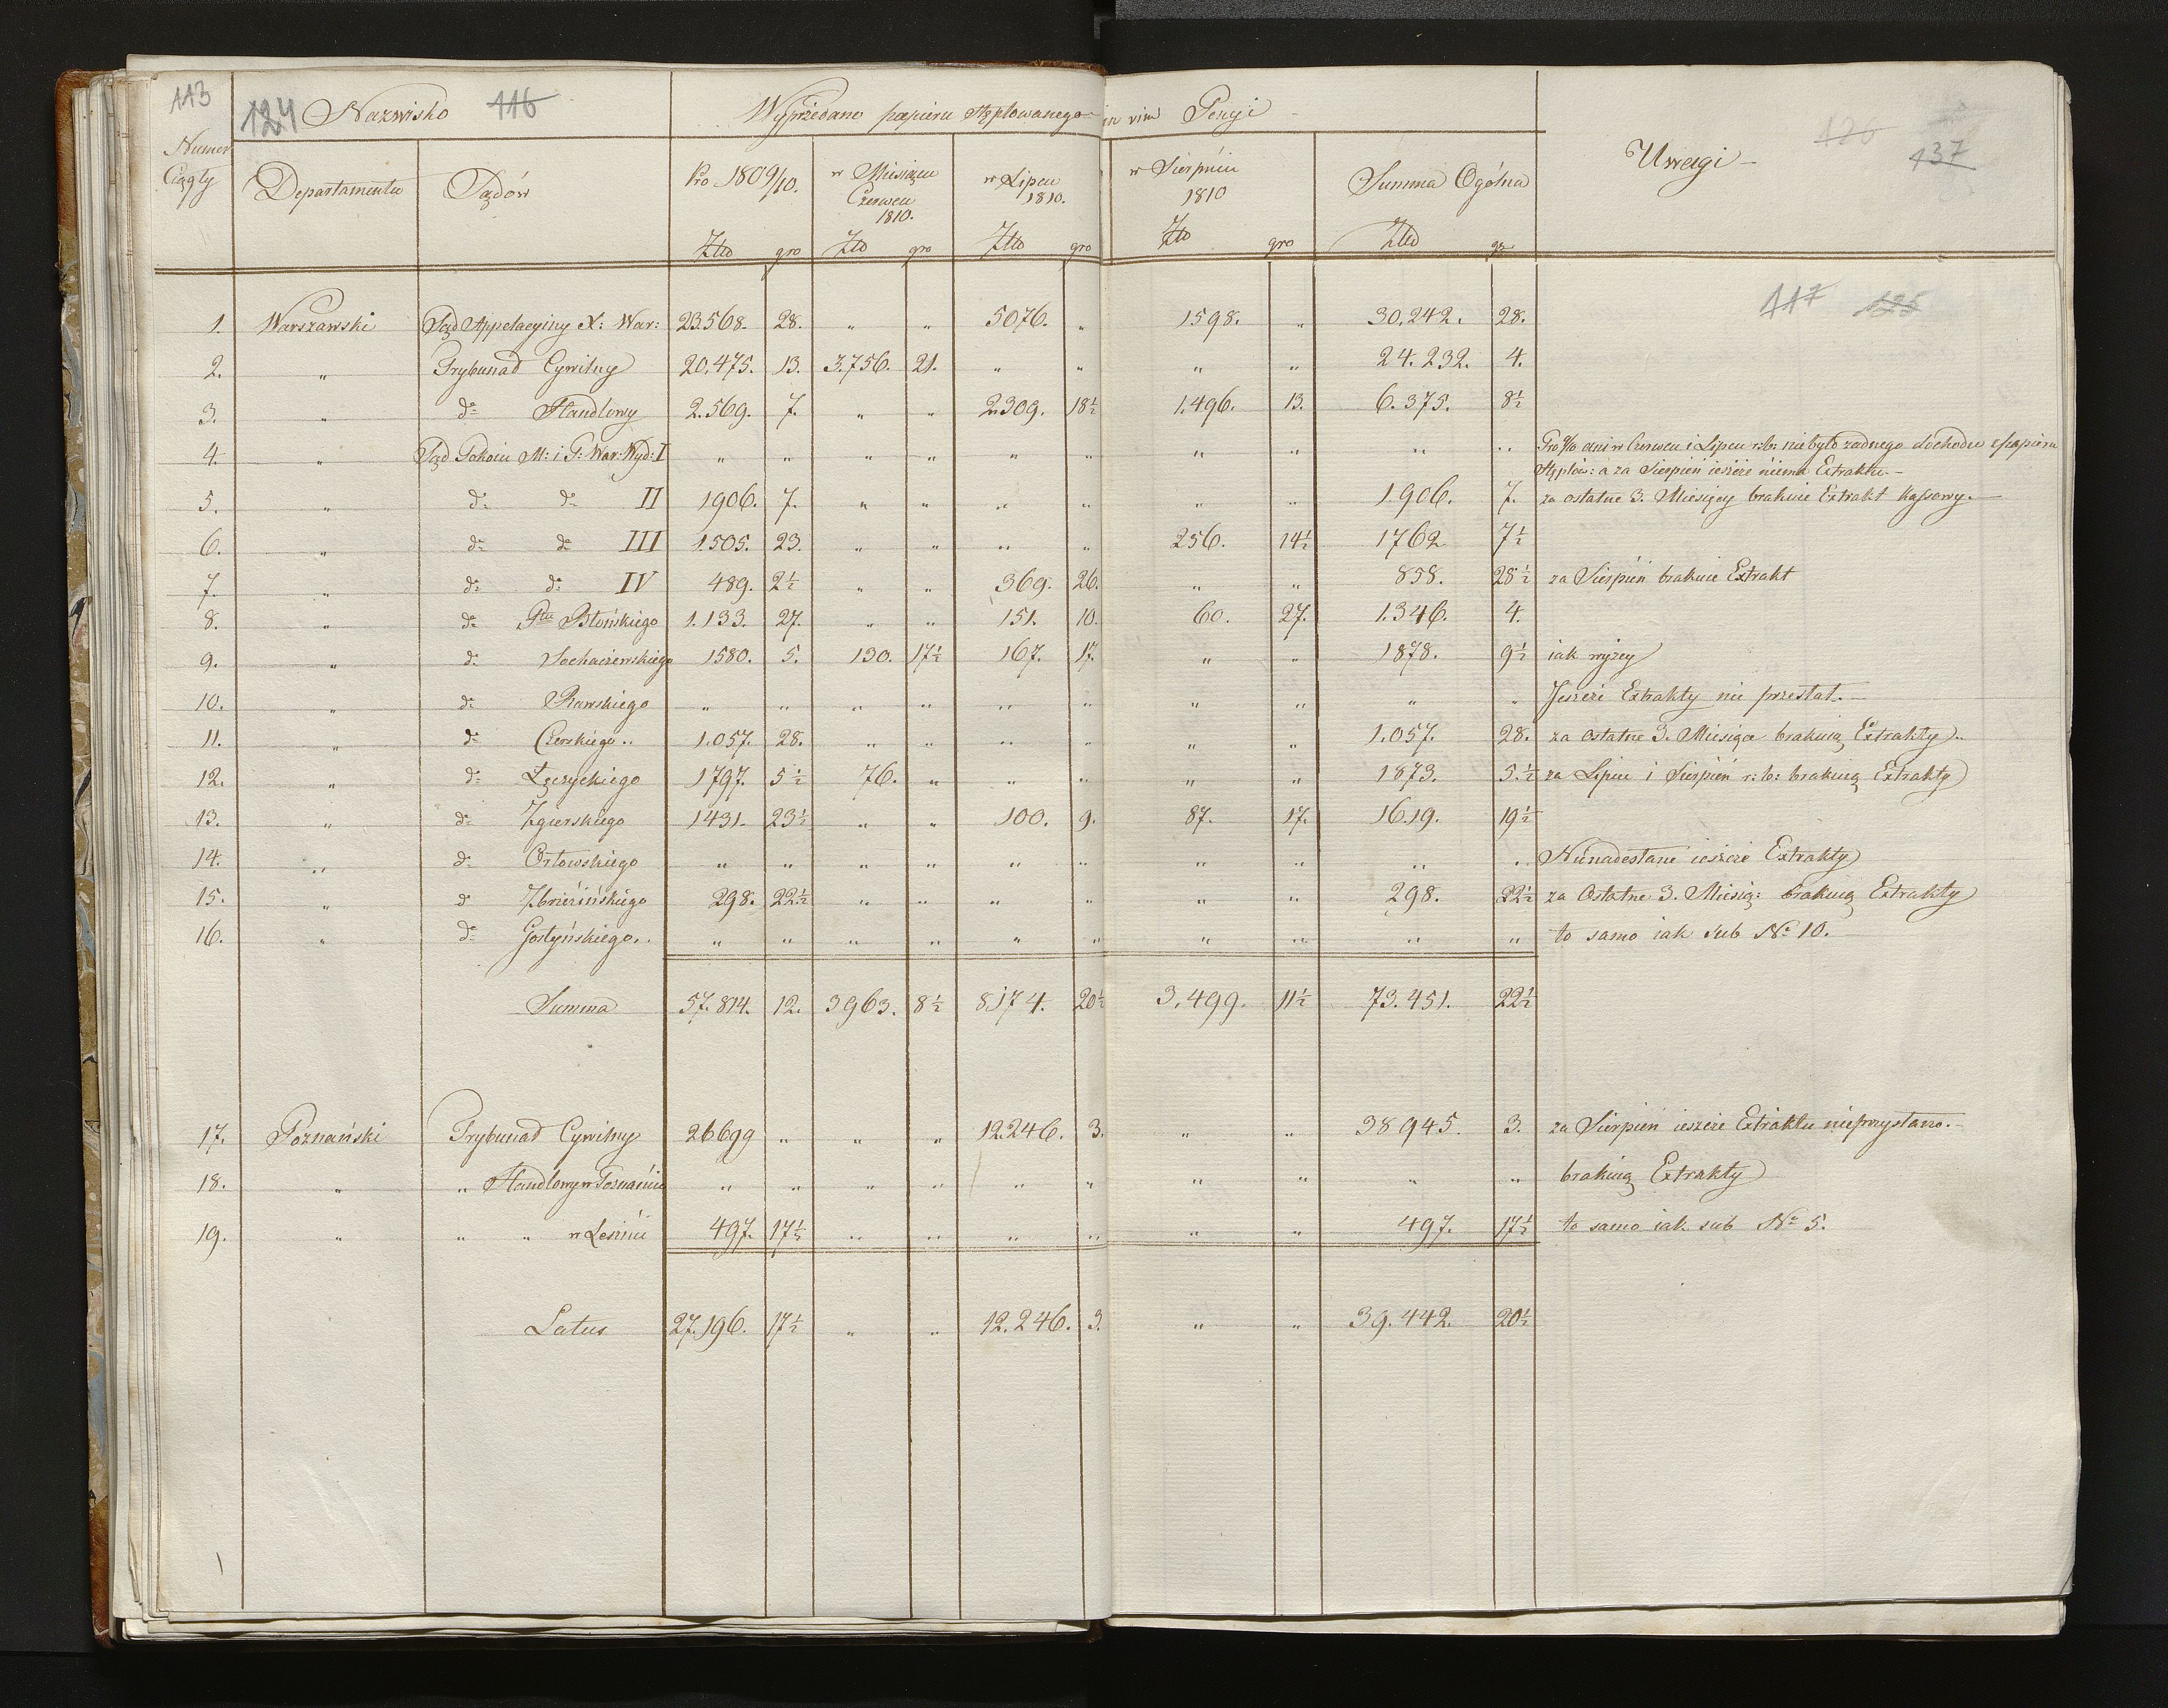 113 124 116
Nazwisko Wyprzedano papieru stęplowanego in vim Pensyi
126 137
Numer Ciągły Departamentu Sądów Pro 1809/10. w Miesiącu Czerwcu 1810. w Lipcu 1810. w Sierpniu 1810 Summa Ogólna Uwagi
Złto gro Złto gro Złto gro Złto gro Złto gr
117 125
1. Warszawski Sąd Appelacyiny X: War: 23.568. 28. " " 5076. " 1598. " 30.242. 28.
2. " Trybunał Cywilny 20.475. 13. 3.756. 21. " " " " 24.232. 4.
3. " do Handlowy 2.569. 7. " " 2.309. 18½ 1.496. 13. 6.375. 8½
4. " Sąd Pokoiu M: i P: War: Wyd: I " " " " " " " " " " Pro 9/10 ani w Czerwcu i Lipcu r:b: niebyło żadnego dochodu z papieru
Stęplow: a za Sierpień ieszcze niema Extraktu.
5. " do do II 1906. 7. " " " " " " 1.906. 7. za ostatne 3. Miesięcy brakuie Extrakt Kassowy.
6. " do do III 1.505. 23. " " " " 256. 14½ 1762 7½
7. " do do IV 489. 2½ " " 369. 26. " " 858. 28½ za Sierpień brakuie Extrakt
8. " do Ptu Błońskiego 1.133. 27. " " 151. 10. 60. 27. 1.346. 4.
9. " do Sochaczewskiego 1580. 5. 130. 17½ 167. 17. " " 1878. 9½ iak wyżey
10. " do Rawskiego " " " " " " " " " " Jeszcze Extrakty nie przesłał.
11. " do Czerskiego .. 1.057. 28. " " " " " " 1.057. 28. za Ostatne 3. Miesiące brakuią Extrakty.
12. " do Łęczyckiego 1797. 5½ 76. " " " " " 1873. 5.½ za Lipiec i Sierpień r: b: brakuią Extrakty
13. " do Zgierskiego 1431. 23½ " " 100. 9. 87. 17. 1619. 19½
14. " do Orłowskiego " " " " " " " " " " Nienadesłane ieszcze Extrakty
15. " do Zbrzezińskiego 298. 22½ " " " " " " 298. 22½ za Ostatne 3. Miesią: brakuią Extrakty
16. " do Gostyńskiego .. " " " " " " " " " " to samo iak sub No 10.
Summa 57.814. 12. 3963. 8½ 8.174. 20½ 3.499. 11½ 73.451. 22½
17. Poznański Trybunał Cywilny 26699 " " " 12.246. 3. " " 38945. 3. za Sierpień ieszcze Extraktu nieprzysłano.
18. " " Handlowy w Poznaniu " " " " " " " " " " brakuią Extrakty
19. " " " w Lesznie 497. 17½ " " " " " " 497. 17½ to samo iak sub No 5.
Latus 27.196. 17½ " " 12.246. 3. " " 39.442. 20½